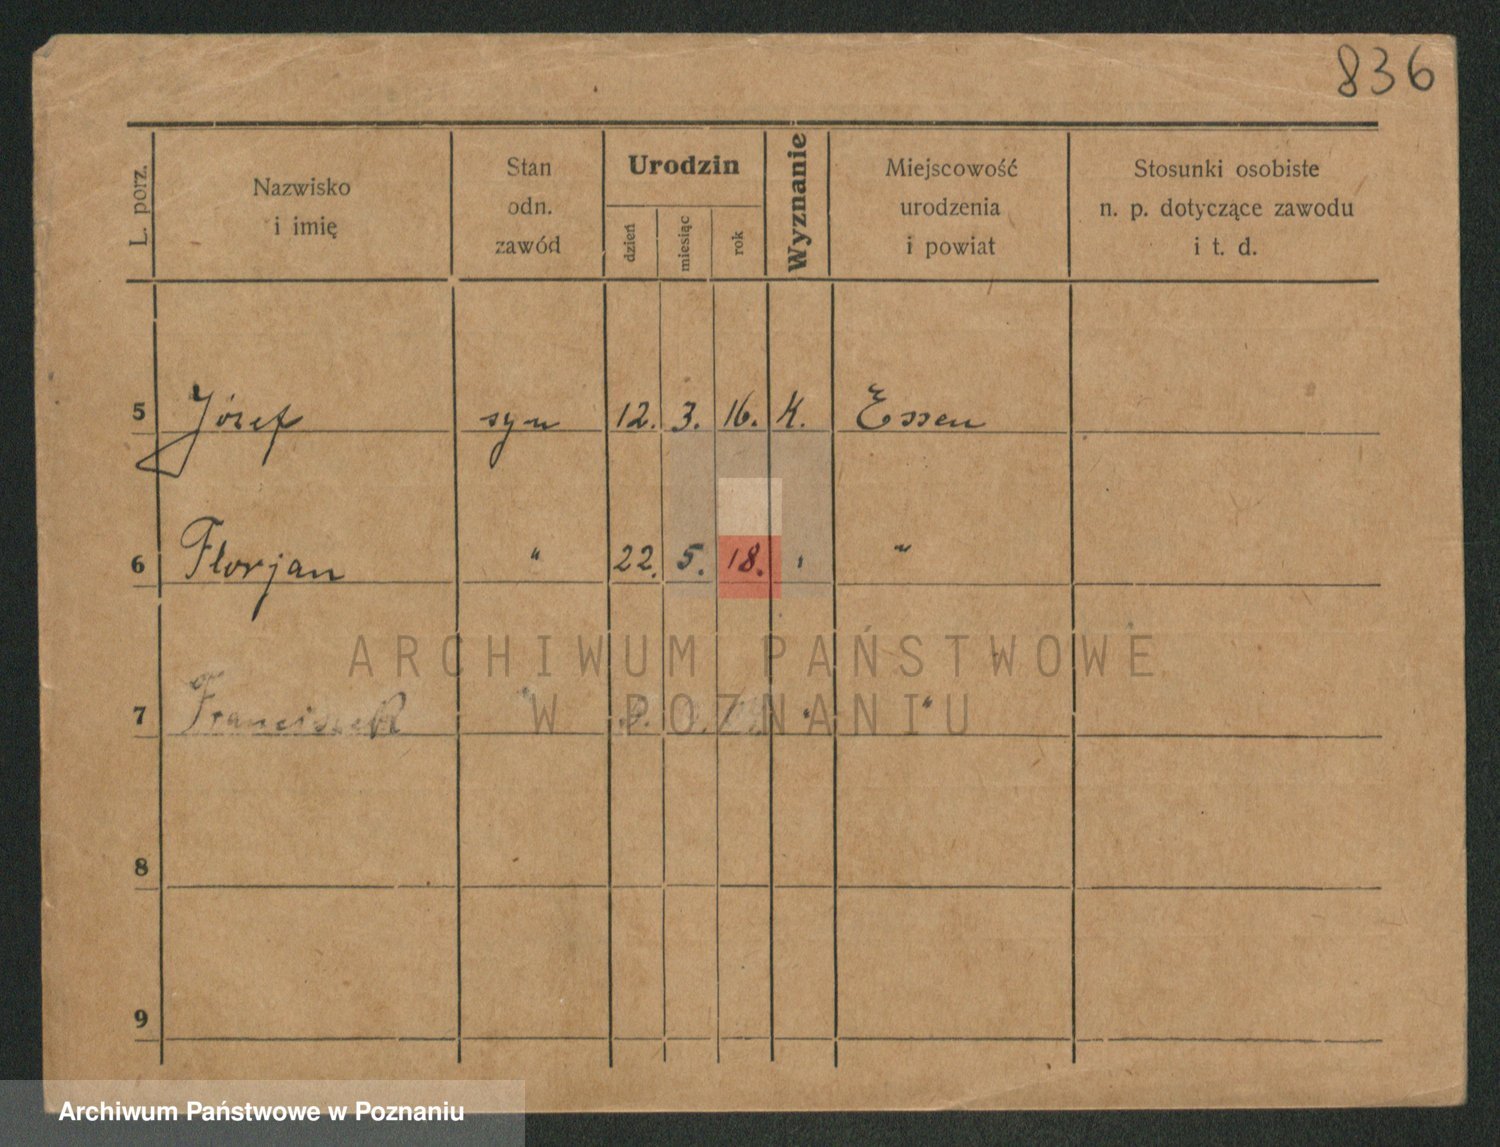 836
L. porz.
Nazwisko
i imię
Stan
odn.
zawód
Urodzin
dzień
miesiąc
rok
Wyznanie
Miejscowość
urodzenia
i powiat
Stosunki osobiste
n. p. dotyczące zawodu
i t. d.
5 Józef syn 12. 3. 16. K. Essen
6 Florjan " 22. 5. 18. " "
ARCHIWUM PAŃSTWOWE
W POZNANIU
7 Franciszek " " "
8
9
Archiwum Państwowe w Poznaniu